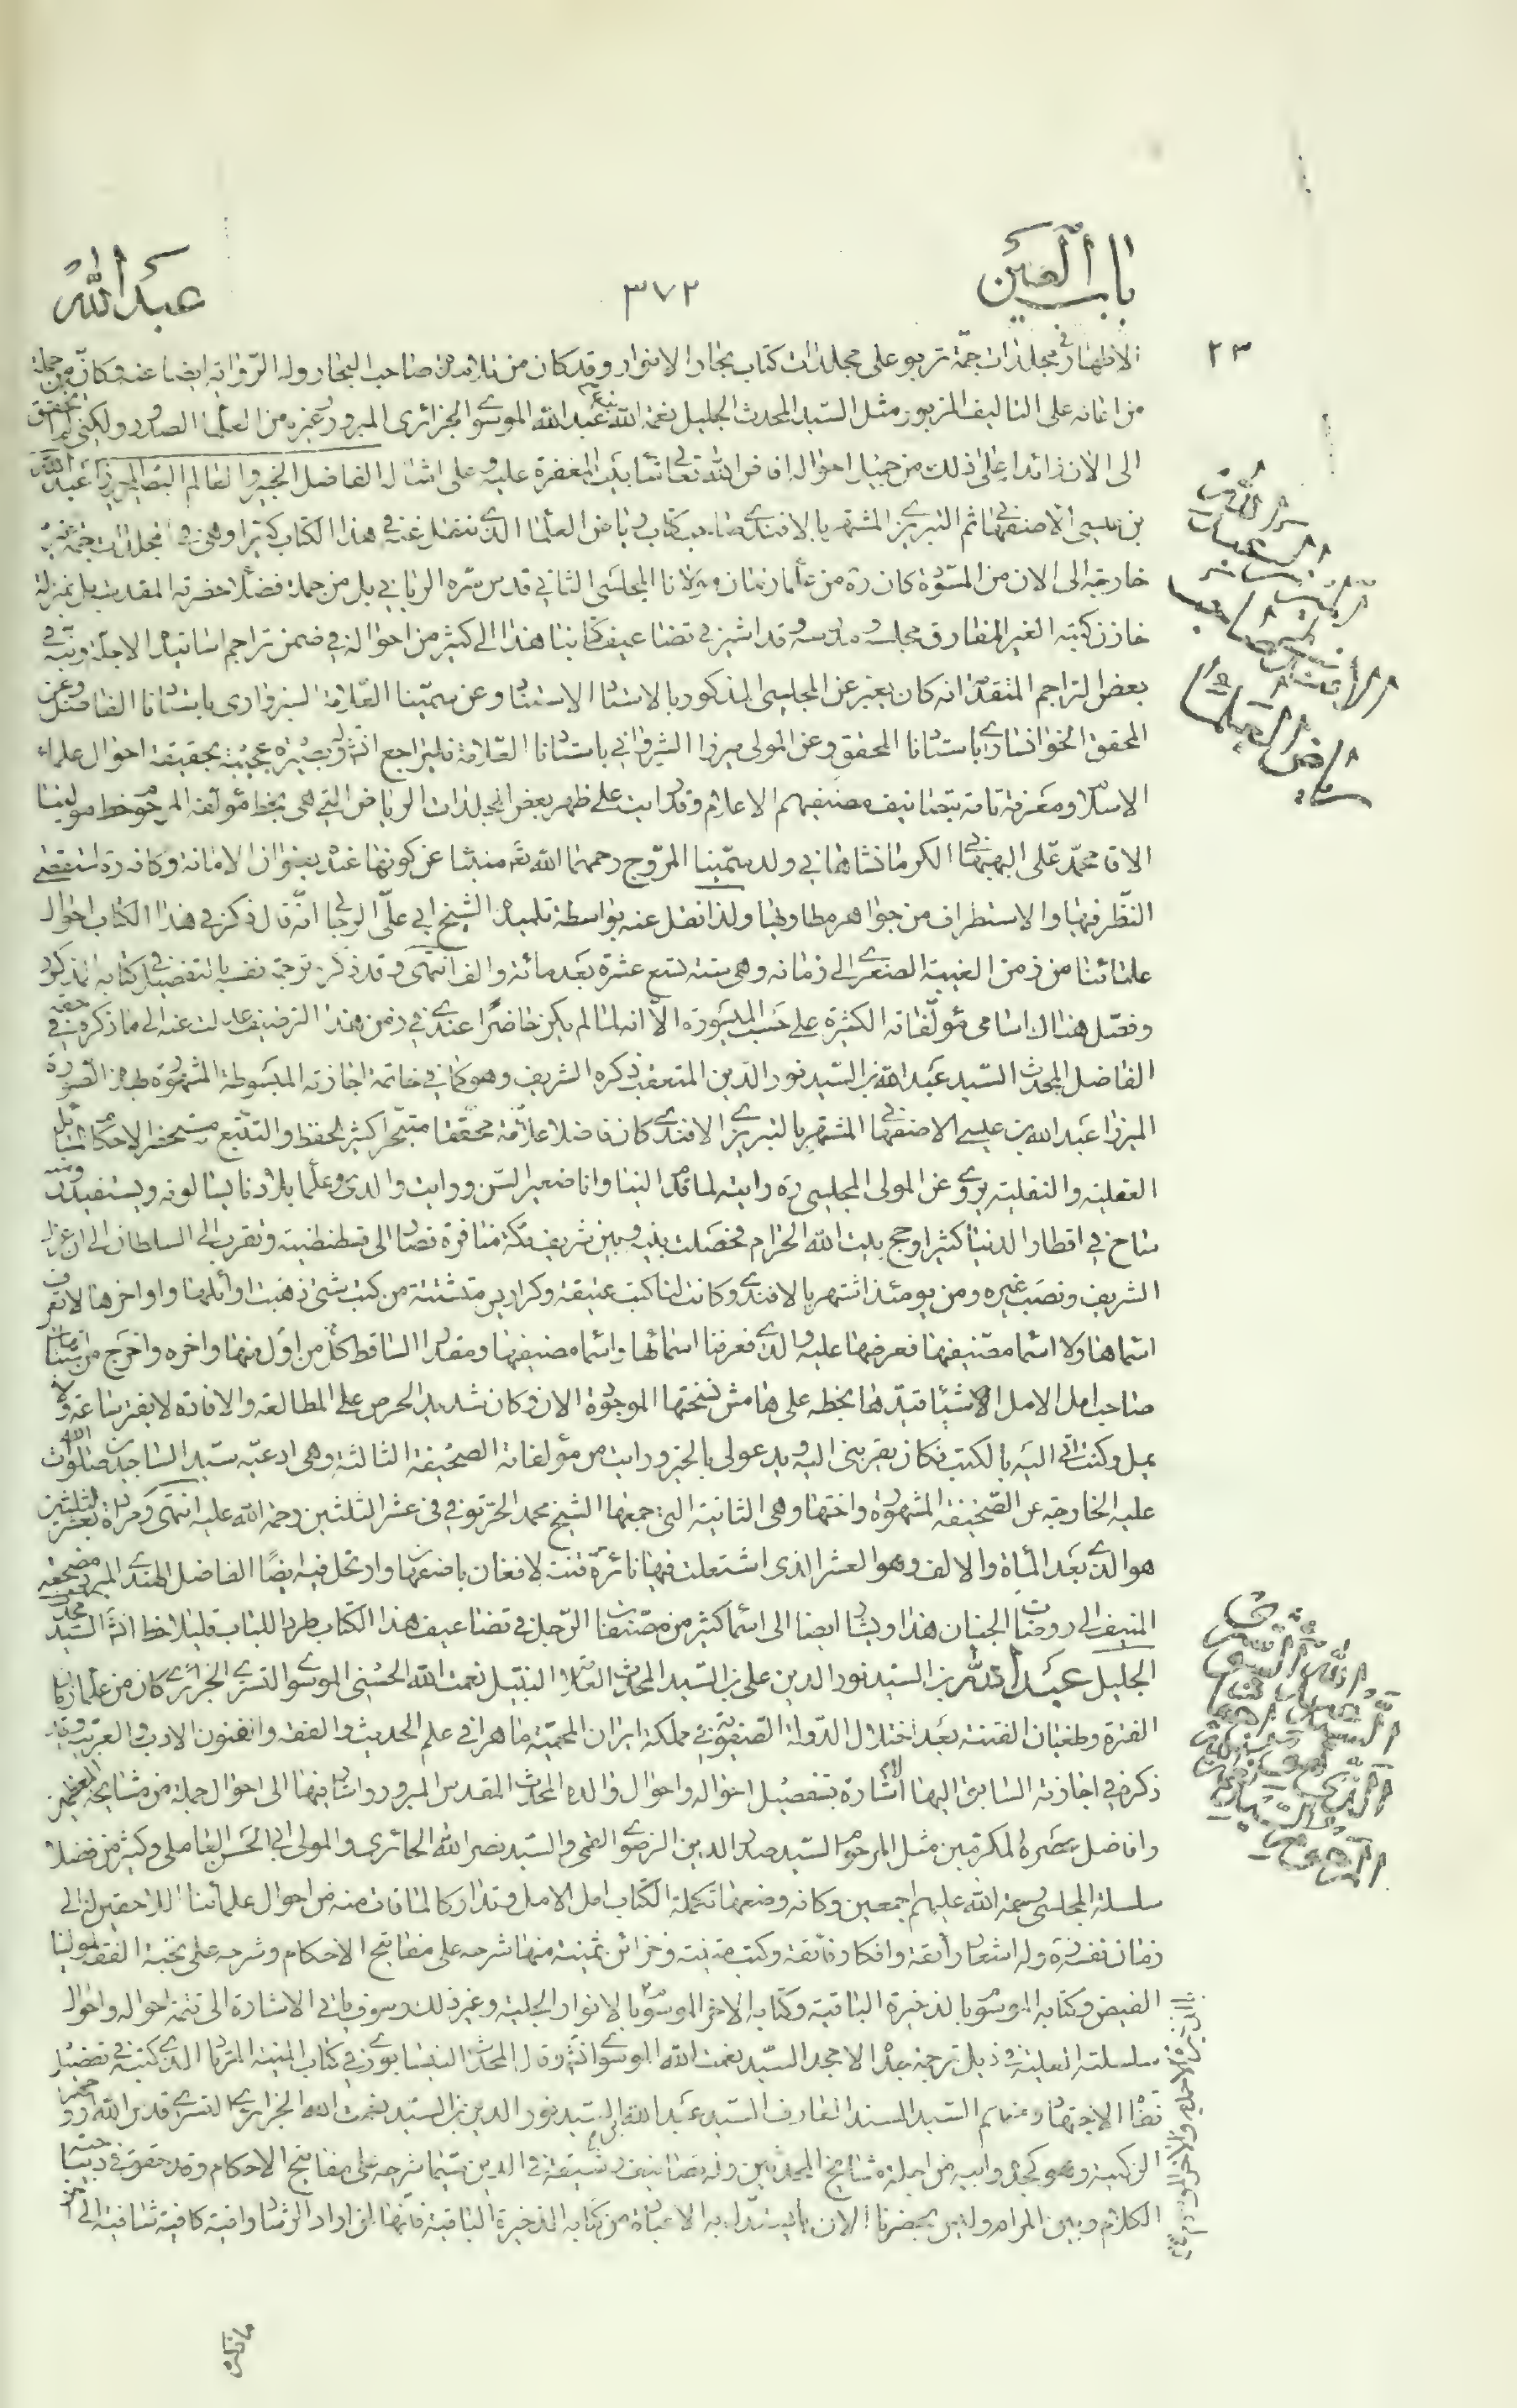 باب العين
٣٧٢
عبد الله
٢٣
الاطهار في مجلدات جمّة تربو على مجلدات كتاب بحار الانوار وقد كان من تلامذة صاحب البحار وله الرّواية ايضا عنه وكانّه من جملة
من اعانه على التاليف المزبور مثل السّيد المحدث الجليل نعمة الله بن عبد الله الموسوى الجزائرى المبرور وغيره من العلماء الصدور ولكنى لم اتحقق
الى الان زائدا على ذلك من جميل احواله افاض الله تعالى شابيب المغفرة عليه وعلى امثاله الفاضل الخبير والعالم البصير الميرزا عبد الله
بن عيسى الاصفهانى ثم التبريزى المشتهر بالافندى صاحب كتاب رياض العلماء الذى ننقل عنه فى هذا الكتاب كثيرا وهى فى مجلدات جمة غير
خارجة الى الان من المسوّدة كان ره من علماء زمان مولانا المجلسى الثانى قدس سّره الربانى بل من جملة فضلاء حضرته المقدسة بل بمنزلة
خازن كتبه الغير المفارق مجلسه ومدرسه وقد اشير فى تضاعيف كتابنا هذا الى كثير من احواله فى ضمن تراجم اساتيذه الاجلة ونبّه فى
بعض التراجم المتقدّمة انه كان يعبر عن المجلسى المذكور بالاستاد الاستناد وعن سمّينا العلّامة السبزوارى باستادنا الفاضل وعن
المحقق الخوانسارى باستادنا المحقق وعن المولى ميرزا الشيروانى باستادنا العلّامة فليراجع انش وله بصيرة عجيبة بحقيقة احوال علماء
الاسلام ومعرفة تامة بتصانيف مصنفيهم الاعلام وقد رايت على ظهر بعض مجلدات الرياض التى هى بخط مؤلفه المرحوم خط مولينا
الاقا محمّد على البهبهانى الكرمانشاهانى ولد سمّينا المروّج رحمهما الله ثم منبئا عن كونها عنده بعنوان الامانة وكانه ره استقصى
النّظر فيها والاستطراف من جواهر مطاويها ولذا نقل عنه بواسطة تلميذه الشيخ ابى علىّ الرجالى انّه قال ذكر فى هذا الكتاب احوال
علمائنا من زمن الغيبة الصغرى الى زمانه وهى سنة تسع عشرة بعد مائة والف انتهى وقد ذكر ترجمة نفسه بالتفضيل فى كتابه المذكور
وفصّل هنالك اسامى مؤلّفاته الكثيرة على حسب الميسورة الّا انه لما لم يكن حاضرا عندى فى زمن هذا الترصيف عدلت عنه الى ما ذكره فى حقه
الفاضل المحدث السّيد عبد الله بن السّيد نور الدّين المتعقب ذكره الشريف وهو كما فى خاتمة اجازته المبسوطة المشهورة بهذه الصورة
الميرزا عبد الله بن عيسى الاصفهانى المشتهر بالتبريزى الافندى كان فاضلا علّامة محققا متبحّرا كثير الحفظ والتتبّع مستحضرا لاحكام المسائل
العقلية والنقلية يروى عن المولى المجلسى ره رايته لما قدم الينا وانا صغير السّن ورايت والدى وعلماء بلادنا يسألونه ويستفيدون منه
ساح فى اقطار الدنيا كثيرا وحج بيت الله الحرام فحصلت بينه وبين شريف مكة منافرة فصار الى قسطنطنية وتقرب الى السلطان الى ان عزل
الشريف ونصب غيره ومن يومئذ اشتهر بالافندى وكانت لنا كتب عتيقة وكراريس متشتتة من كتب شتى ذهبت اوائلها واواخرها لا نعرف
اسمائها ولا اسماء مصنّفيها فعرضها عليه والدى فعرفنا اسمائها واسماء مصنفيها ومقدار الساقط من كل من اول منها واخره واخرج من بستان
صاحب امل الامل اشياء قيّدها بخطه على هامش نسختها الموجودة الان وكان شديد الحرص على المطالعة والافادة لا يفتر ساعة ولا
يمل وكنت اتى اليه بالكتب فكان يقربنى اليه ويدعو لى بالخير ورايت من مؤلفاته الصحيفة الثالثة وهى ادعية سيّد الساجدين صلوات الله
عليه الخارجة عن الصّحيفة المشهورة واختها وهى الثانية التى جمعها الشيخ محمد الحرّ توفى فى عشر الثلثين رحمة الله عليه انتهى ومراده بعشر الثلثين
هو الذى بعد المأة والالف وهو العشر الذى اشتعلت فيها نائرة فتنة الافغان باصفهان وارتحل فيه ايضًا الفاضل الهندى المبرور فى مضجعه
المنيف الى روضات الجنان هذا ويشار ايضا الى اسماء كثير من مصنّفات الرّجل فى تضاعيف هذا الكتاب طرد اللباب فليلاحظ انش السّيّد
الجليل عبد الله بن السيد نور الدين على بن السّيد المحدث العلامة النبيل نعمت الله الحسينى الموسوى التسترى الجزائرى كان من علماء زمان
الفترة وطغيان الفتنة بعد اختلال الدّولة الصّفويّة فى مملكة ايران المحميّة ماهرا فى علم الحديث والفقه وافنون الادب والعربية وقد
ذكر فى اجازته السابق اليها الاشارة بتفصيل احواله واحوال والده المحدث المقدس المبرور واشار فيها الى احوال جملة من مشايخه المعظمين
وافاضل عصره المكرّمين مثل المرحوم السّيد صدر الدين الرضوى القمى والسّيد نصر الله الحائرى والمولى ابى الحسن العاملى وكثير من فضلاء
سلسلة المجلسى رحمة الله عليهم اجمعين وكانه وضعها تكملة لكتاب امل الامل وتداركا لما فات منه من احوال علمائنا اللاحقين له الى
زمان نفسه وله اشعار رائقة وافكار فائقة وكتب متينة وخزائن ثمينة منها شرحه على مفاتيح الاحكام وشرحه على نخبة الفقه لمولينا
الفيض وكتابه الموسوم بالذخيرة الباقية وكتابه الاخر الموسوم بالانوار الجلية وغير ذلك وسوف ياتى الاشارة الى تتمة احواله واحوال
سلسلته العلية فى ذيل ترجمة جدّه الامجد السّيد نعمت الله الموسوى انش وقال المحدث النيسابورى فى كتاب المنية المرتاد الذى كتبه فى تفصيل
نفاة الاجتهاد ومنهم السّيد المسند العارف السّيد عبد الله بن السّيد نور الدين بن السّيد نعمت الله الجزائرى التسترى قدس الله ارواحهم
الزكية وهو كجدّه وابيه من اجلة مشايخ المحدثين وله تصانيف رشيقة فى الدين سيّما شرحه على مفاتيح الاحكام وقد حقق فى ديباجته
الكلام وبين المرام وليس يحضرنا الان